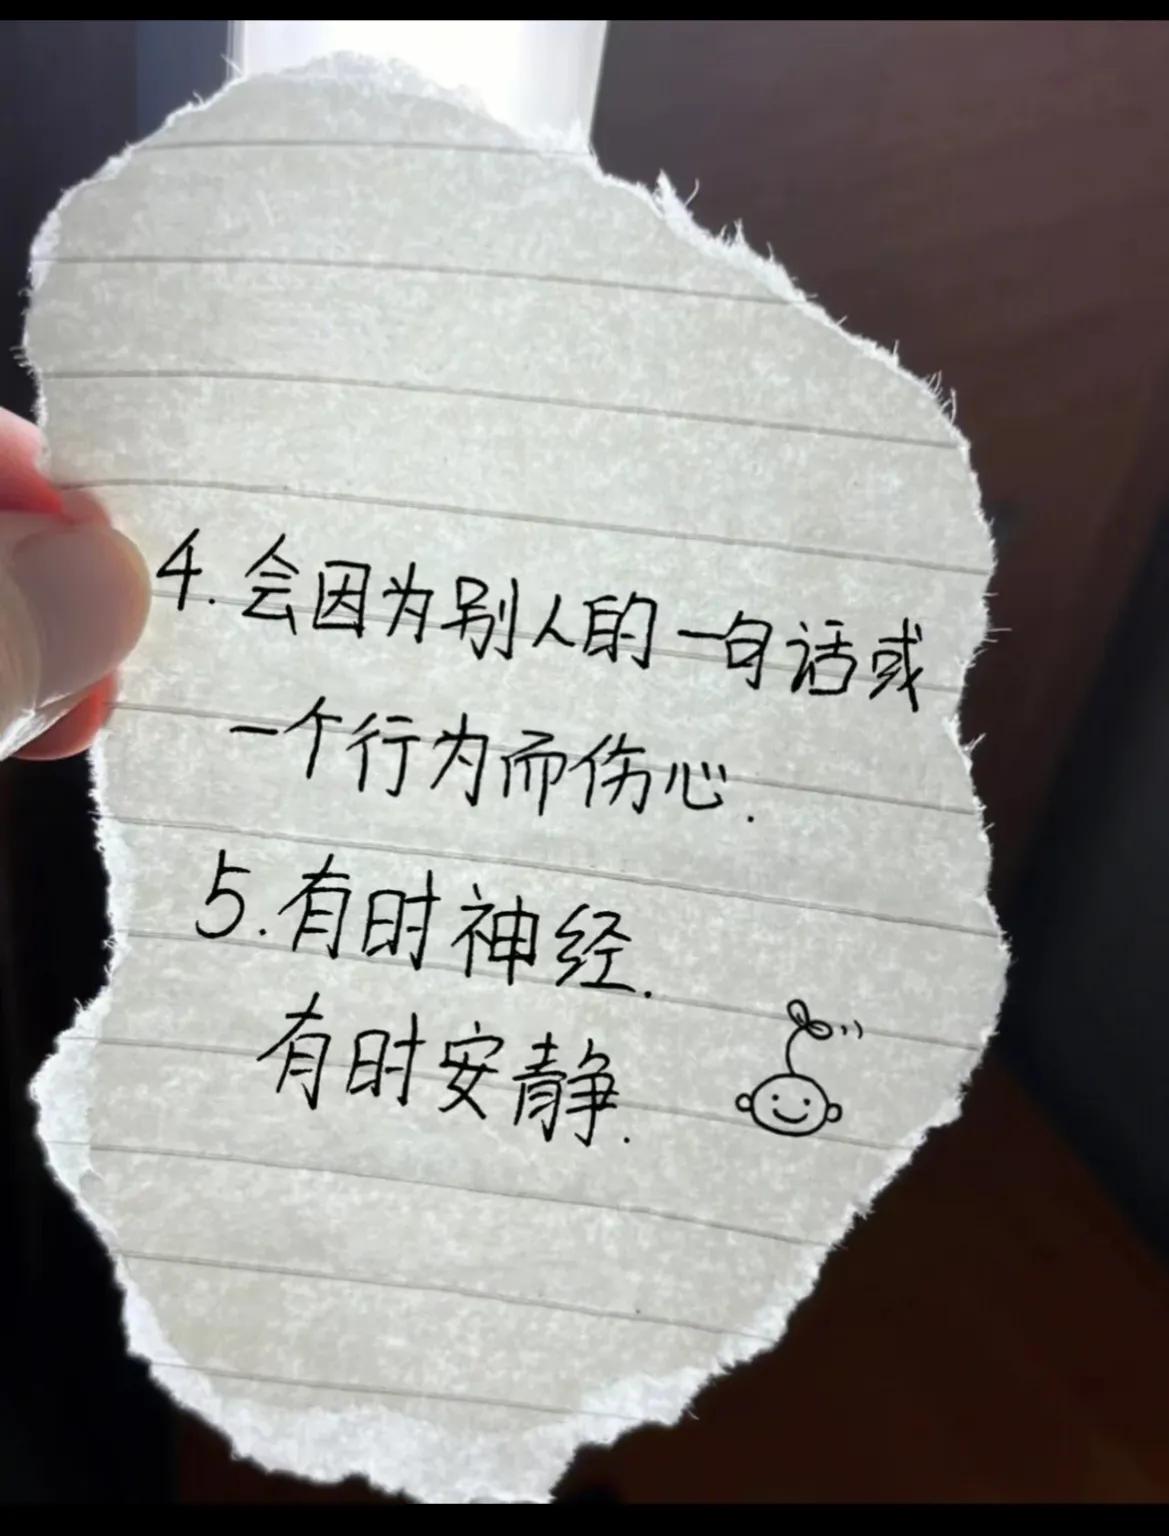 4.会因为别人的一句话或
一个行为而伤心.
5.有时神经.
有时安静.